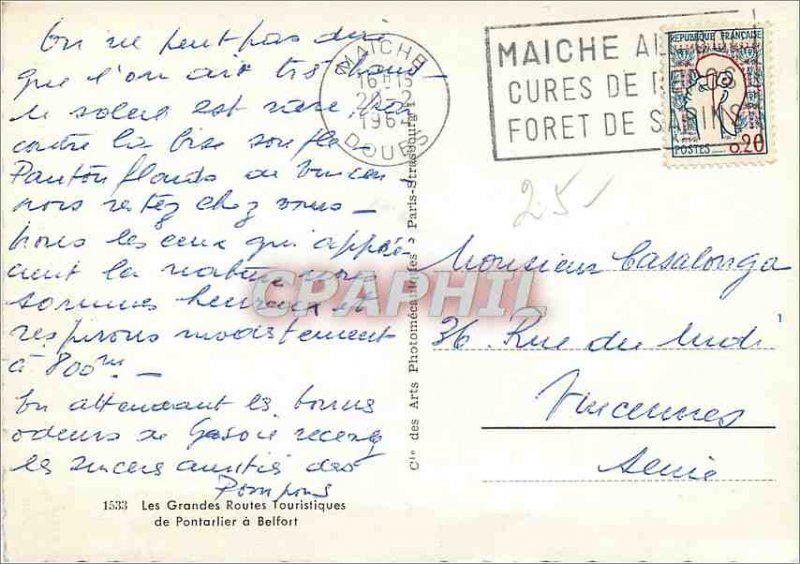 On ne peut pas dire
que l'on ait très chaud -
le soleil est rare, par
contre la bise souffle -
Pantouflards de Vincennes
vous restez chez vous -
Nous les ceux qui appré-
cient la nature nous
sommes heureux et
respirons modestement
à 800m -
En attendant les bonnes
odeurs de Gasoil recevez
les sincères amitiés des
Pompons
1533 Les Grandes Routes Touristiques
de Pontarlier à Belfort
Cie des Arts Photomécaniques - Paris-Strasbourg
MAICHE
16H15
1964
DOUBS
MAICHE
CURES DE REPOS
FORET DE SAPINS
REPUBLIQUE FRANÇAISE
POSTES 0,20
25
Monsieur Casalonga
36 Rue du Midi
Vincennes
Seine
CPAPHIL